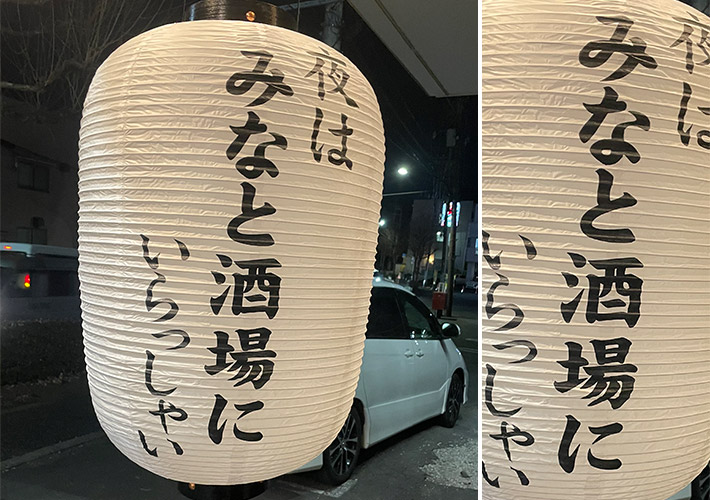 夜は
みなと酒場に
いらっしゃい
夜は
みなと酒場に
いらっしゃい